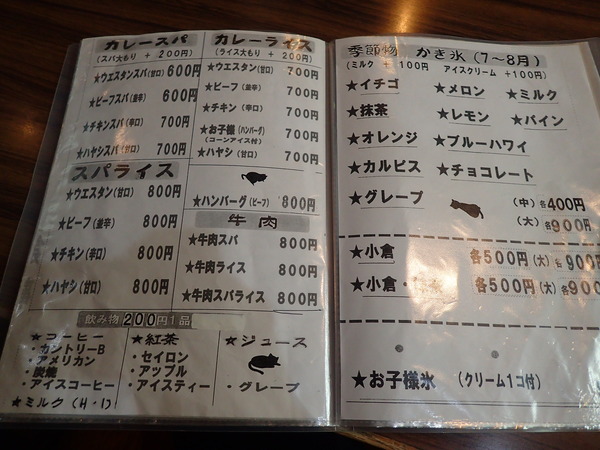 カレースパ
(スパ大もり + 200円)
★ウエスタンスパ(甘口) 600円
★ビーフスパ(並辛) 600円
★チキンスパ(辛口) 700円
★ハヤシスパ(甘口) 700円
スパライス
★ウエスタン(甘口) 800円
★ビーフ(並辛) 800円
★チキン(辛口) 800円
★ハヤシ(甘口) 800円
カレーライス
(ライス大もり + 200円)
★ウエスタン(甘口) 700円
★ビーフ(並辛) 700円
★チキン(辛口) 700円
★お子様(ハンバーグ) 700円
(コーンアイス付)
★ハヤシ(甘口) 700円
★ハンバーグ(ビーフ) 800円
牛肉
★牛肉スパ 800円
★牛肉ライス 800円
★牛肉スパライス 800円
飲み物200円1品
★コーヒー
・カントリーB
・アメリカン
・炭焼
・アイスコーヒー
★ミルク(H・I)
★紅茶
・セイロン
・アップル
・アイスティー
★ジュース
・グレープ
季節物 かき氷(7~8月)
(ミルク + 100円 アイスクリーム +100円)
★イチゴ ★メロン ★ミルク
★抹茶 ★レモン ★パイン
★オレンジ ★ブルーハワイ
★カルピス ★チョコレート
★グレープ (中)各400円
(大)各900円
★小倉 各500円(大)各900
★小倉・ 各500円(大)各900
★お子様氷 (クリーム1コ付)